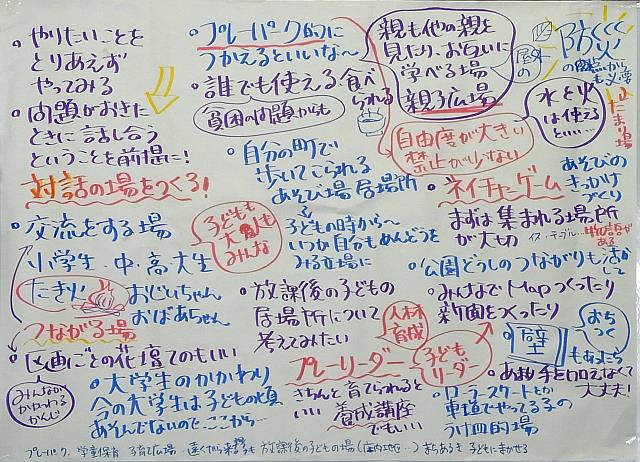 やりたいことを
とりあえず
やってみる
問題がおきた
ときに話し合う
ということを前提に!
対話の場をつくる!
交流をする場
小学生・中・高・大生
たき火
おじいちゃん
おばあちゃん
つながる場
区画ごとの花壇でもいい
みんなが
かかわれる
かんじ
プレーパーク的に
つかえるといいな〜
誰でも使える食べられる
貧困の問題からも
自分の町で
歩いてこられる
あそび場 居場所
子どもも
大人も
みんな
子どもの時から〜
いつか自分もめんどうを
みる立場に
放課後の子どもの
居場所について
考えてみたい
人材
育成
プレーリーダー
子ども
リーダー
きちんと育てられると
いい
養成講座
でもいい
大学生のかかわり
今の大学生は子どもの頃
あそんでないので、ここから…
親も他の親を
見たり、お互いに
学べる場
親子広場
自由度が大きい
禁止が少ない
屋外の
防災
の観点から
も必要
水と火
は使える
といい…
たまり場
ネイチャーゲーム
あそびの
きっかけ
づくり
まずは集まれる場所
が大切
イス・テーブル…
物語がある
公園どうしのつながりも活かして
みんなでMapつくったり
新聞をつくったり
おち
つく
壁
もあったら
あまり手を加えなくて
大丈夫!
ローラースケートとか
車道でやってる子の
うけ皿的場
プレーパーク 学童保育 子育て広場 遠くから来る子も 放課後の子どもの場
子どもにまかせる